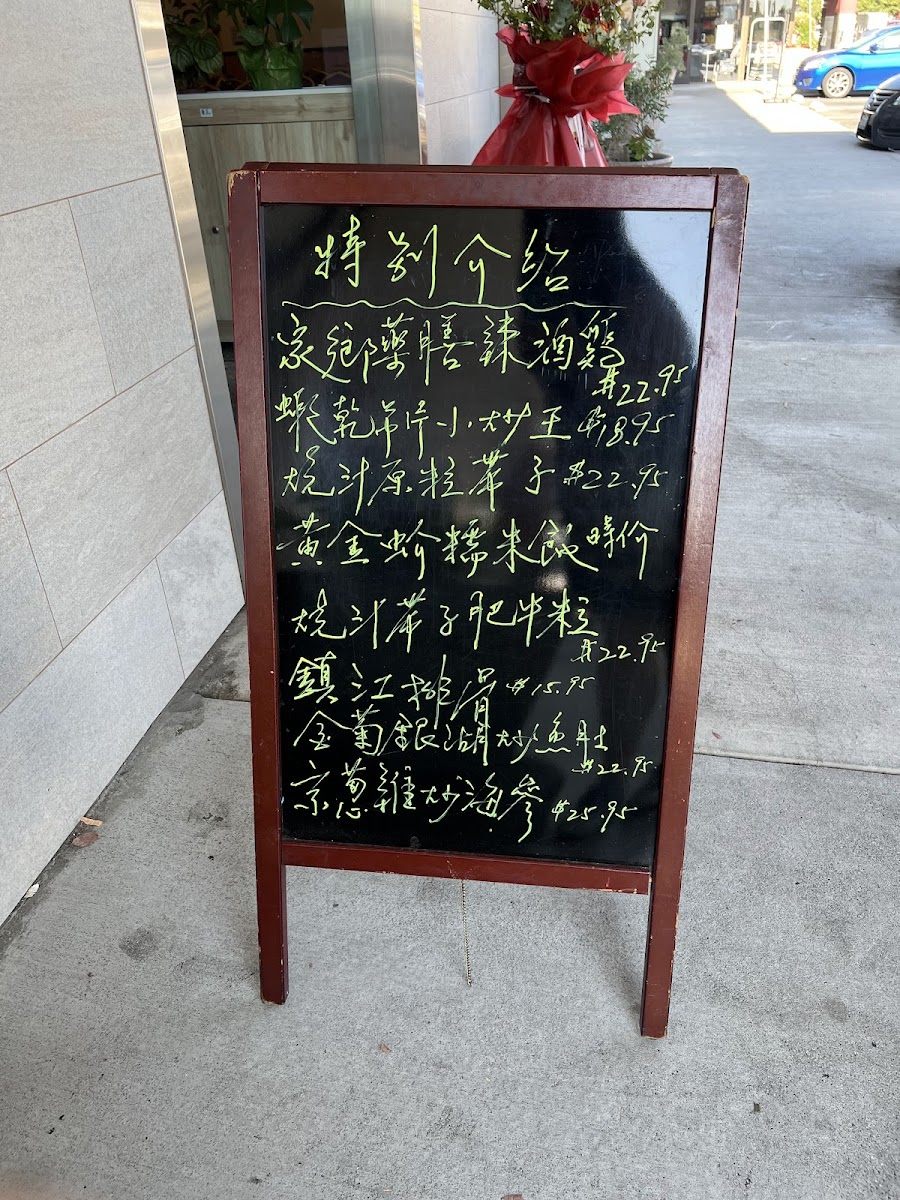 特别介绍
家鄉藥膳辣酒鷄
$22.95
蝦乾吊片小炒王 $18.95
燒汁原粒菓子 $22.95
黃金蚧糯米飯時价
燒汁菓子肥牛粒
$22.95
鎮江排骨 $15.95
金菊銀湖炒魚肚
$22.95
京葱雞炒海參 $25.95